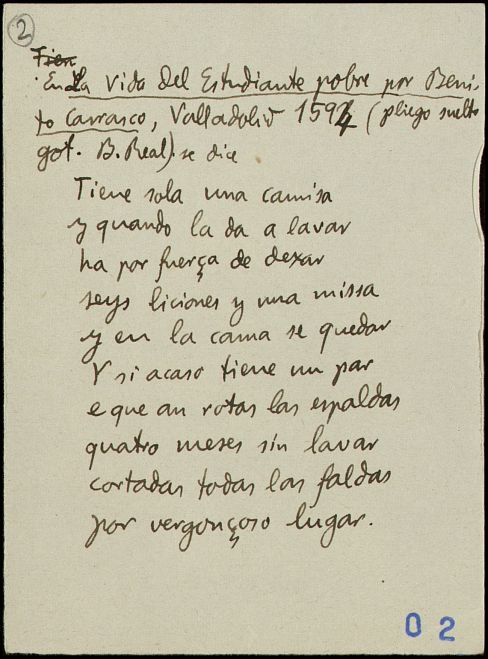 2
Tien
En la Vida del Estudiante pobre por Beni-
to Carrasco, Valladolid 1592 (pliego suelto
got. B. Real). se dice
Tiene sola una camisa
y quando la da a lavar
ha por fuerça de dexar
seys liciones y una missa
y en la cama se quedar
Y si acaso tiene un par
e que an rotas las espaldas
quatro meses sin lavar
cortadas todas las faldas
por vergonçoso lugar.
02